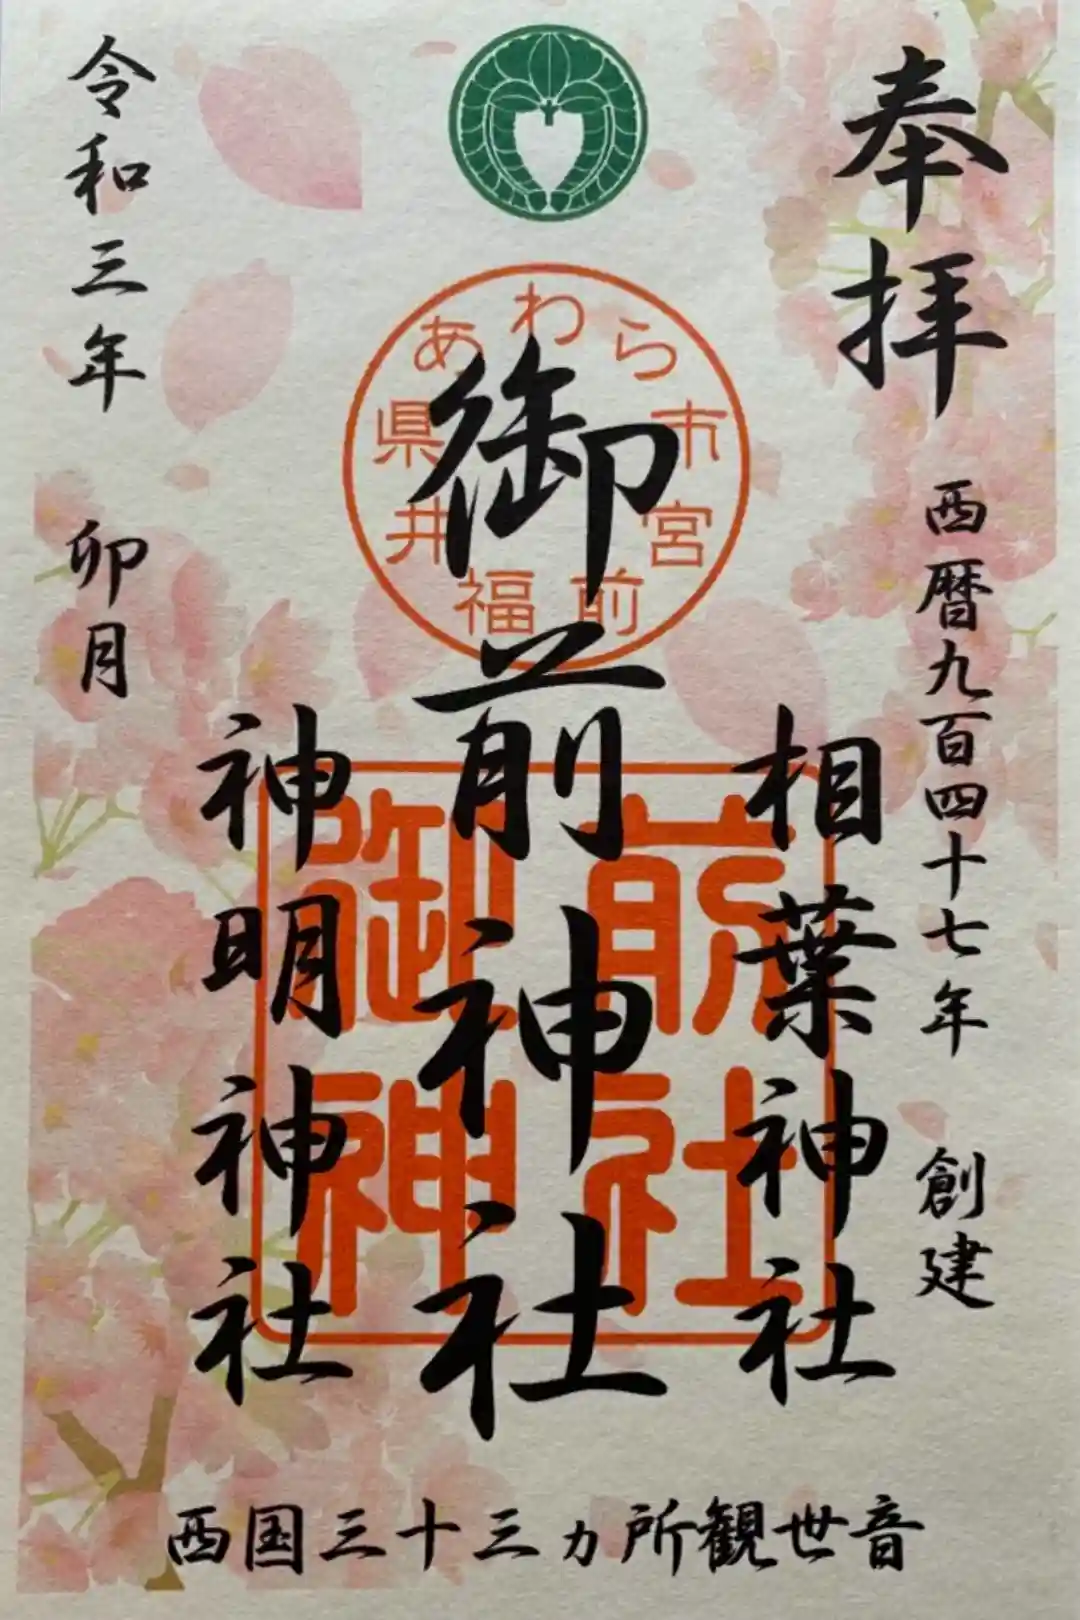 奉拝
西暦九百四十七年 創建
相葉神社
御前神社
神明神社
令和三年 卯月
福井県あわら市宮前
御前神社
西国三十三ヵ所観世音